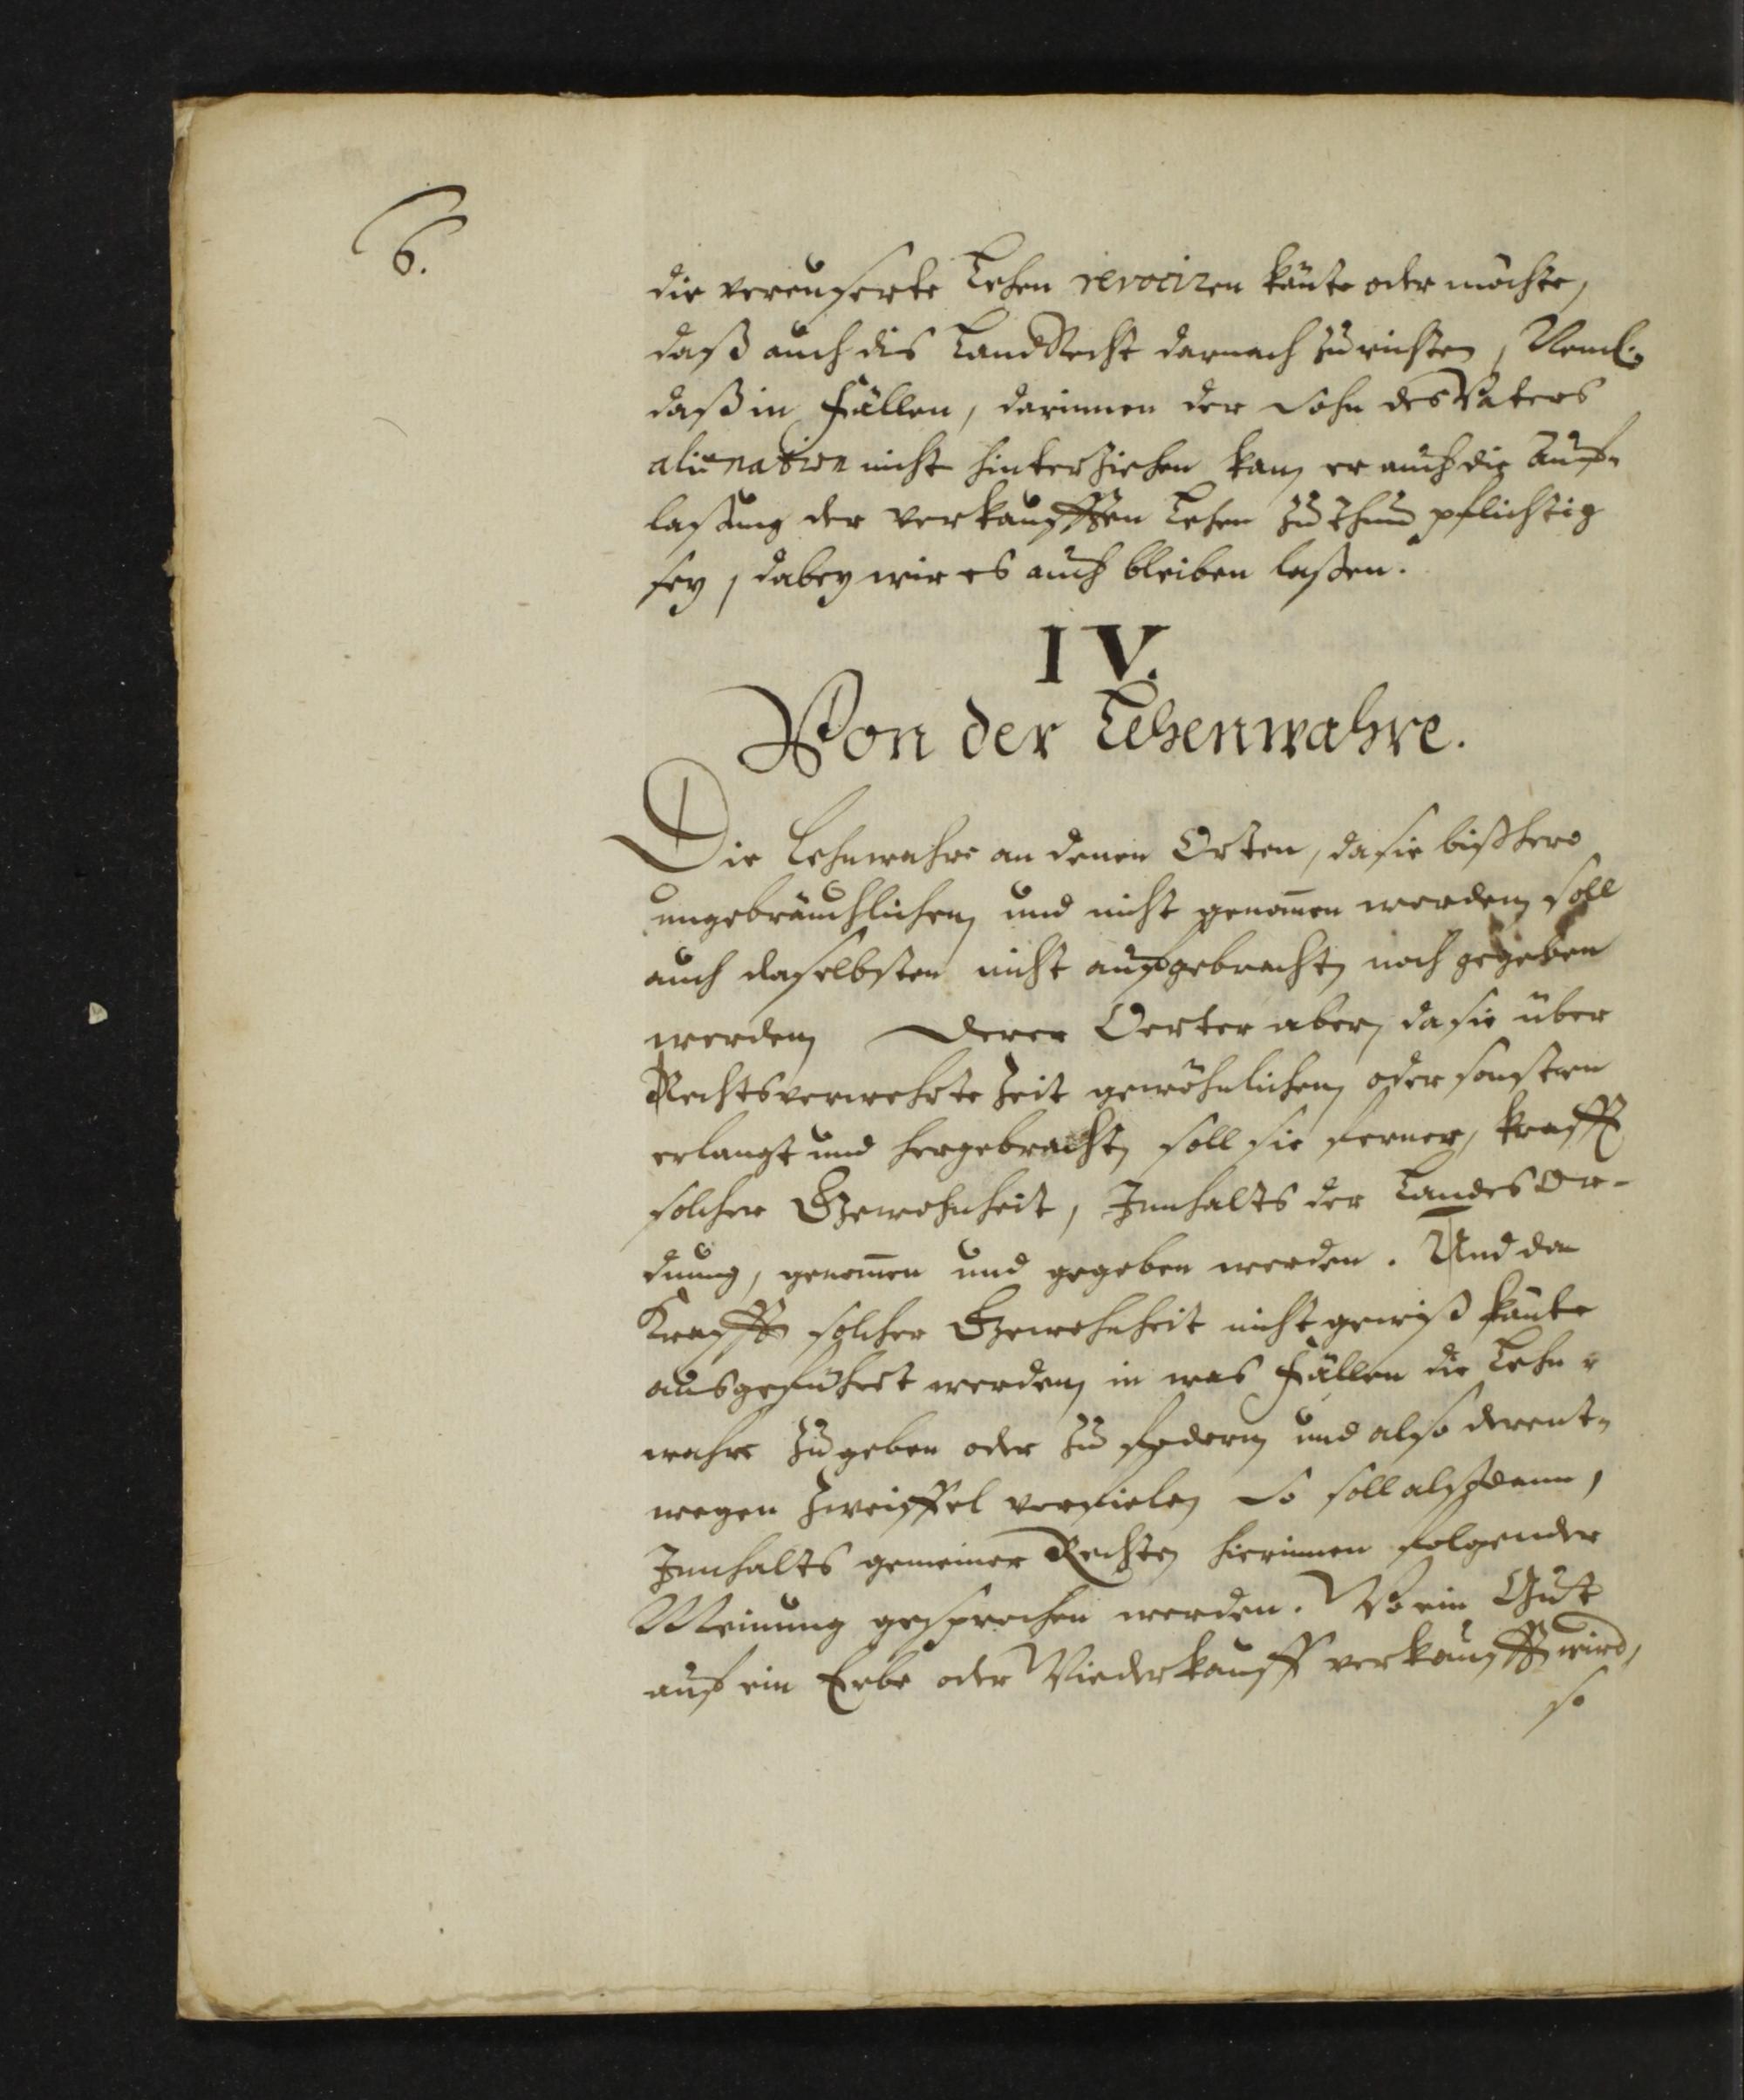 6.
die vereuserte Lehen revociren känte oder möchte,
daß auch dis LandRecht darnach zu richten, Neml.
daß in Fällen, darinnen der Sohn des Vaters
alienation nicht hinterziehen kan, er auch die Auf-
lassung der verkaufften Lehen zu thun pflichtig
sey, dabey wir es auch bleiben laßen.
IV.
Von der Lehenwahre.
Die Lehnwahre an denen Orten, da sie bißhero
ungebräuchlichen, und nicht genom̄en werden, soll
auch daselbsten nicht aufgebracht, noch gegeben
werden, Derer Oerter aber, da sie über
Rechtsverwehrte Zeit gewöhnlichen, oder sonsten
erlangt und hergebracht, soll sie ferner, krafft
solcher Gewohnheit, Innhalts der Landes Or-
dnung, genom̄en und gegeben werden. Und da
Krafft solcher Gewohnheit nicht gewiß känte
ausgeführt werden, in was Fällen die Lehn-
wahre zu geben oder zu fodern, und also derent-
wegen Zweiffel verfielen, So soll alsdann,
Innhalts gemeiner Rechten, hierinnen folgender
Meinung gesprochen werden. Wo ein Gut
auf ein Erbe oder Wiederkauff verkaufft wird,
so